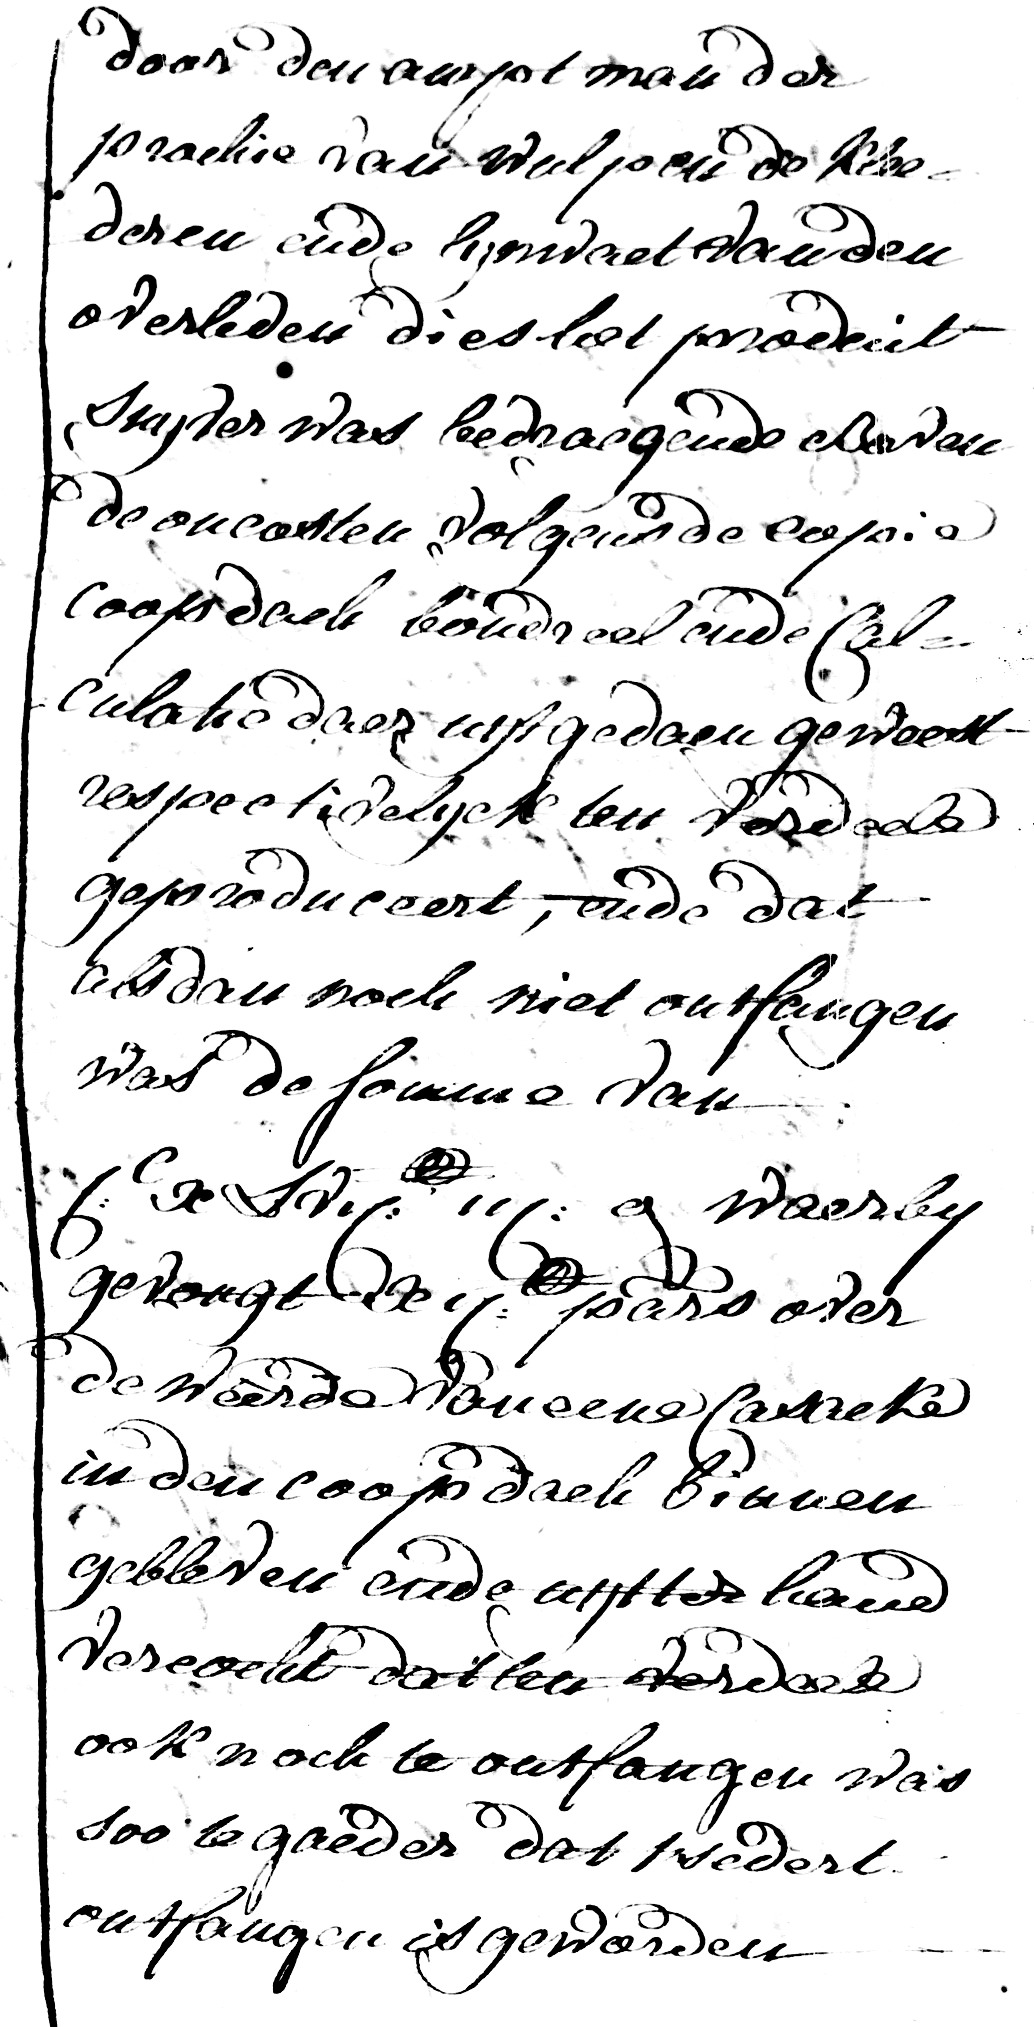 door den amptman der
prochie van Wulpen de klee=
deren ende lynwaet vanden
overleden dies het produit
suyver was bedraegende boven
de oncosten volgens de copie
coopdach bondreel ende Cal=
culatie daer uyt gedaen geweest
respectivelyck ten verdeele
geproduceert, ende dat
alsdan noch niet ontfangen
was de somme van
waerby
gevougt pars over
de weerde van eene Casacke
in den coopdach binnen
gebleven ende uytter hand
vercocht dat ten verdeele
ook noch te ontfangen was
soo te gaeder dat tsedert
ontfangen is geworden